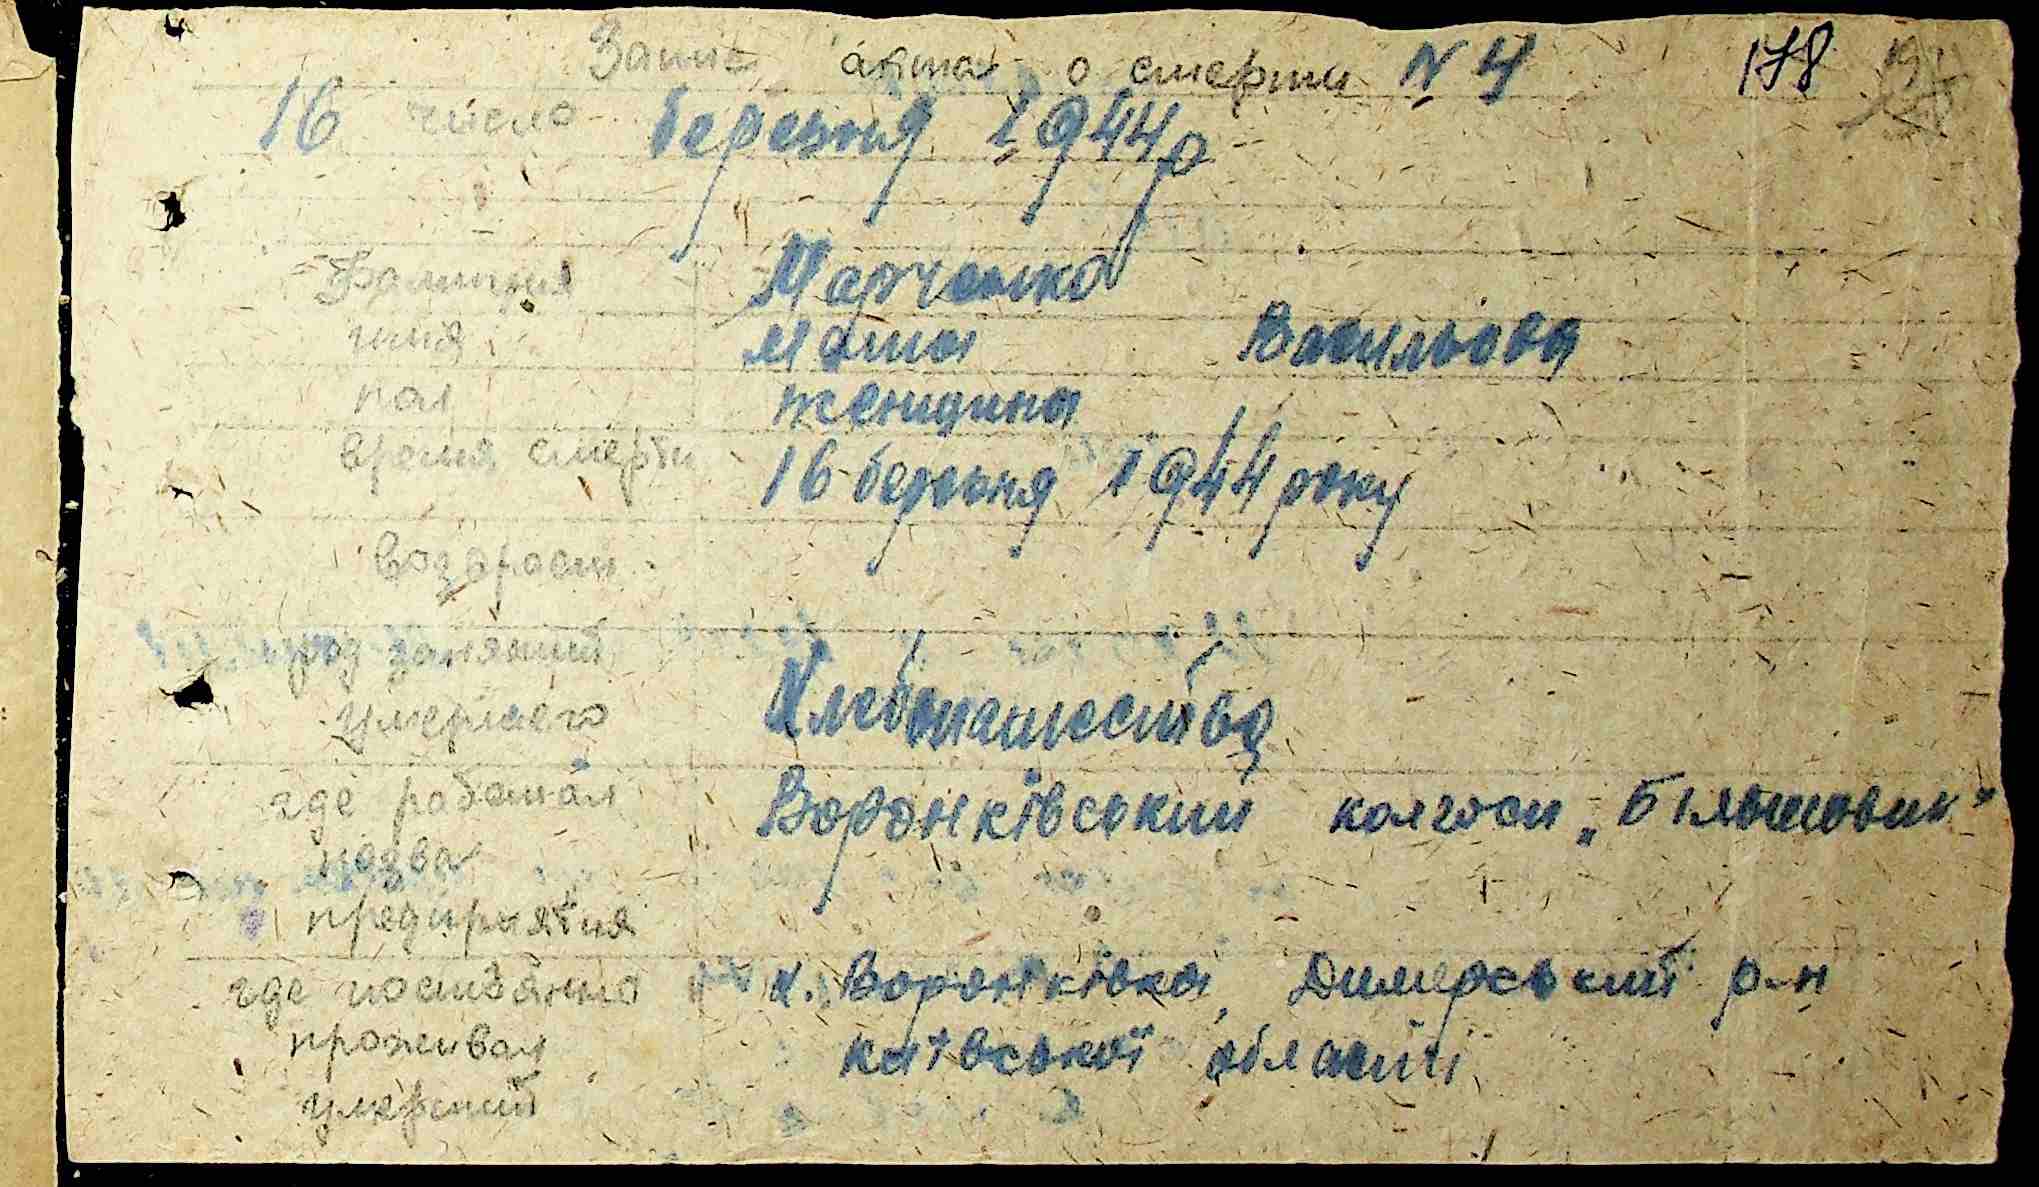 Запис акта о смерти N 4 178
16 число березня 1944 р
Фамилия Марченко
имя Маша Васильовна
пол женщина
время смерти 16 березня 1944 року
возраст
род занятий
умершего Хлебопашество
где работал Воронківський колгосп „Більшовик"
назва
предприятия
где постоянно х. Воронківка, Димерський р-н
проживал київської області
умерший